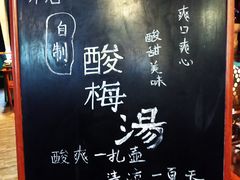 本店
自制
酸梅湯
酸甜美味
爽口爽心
酸爽一扎壶
清凉一夏天